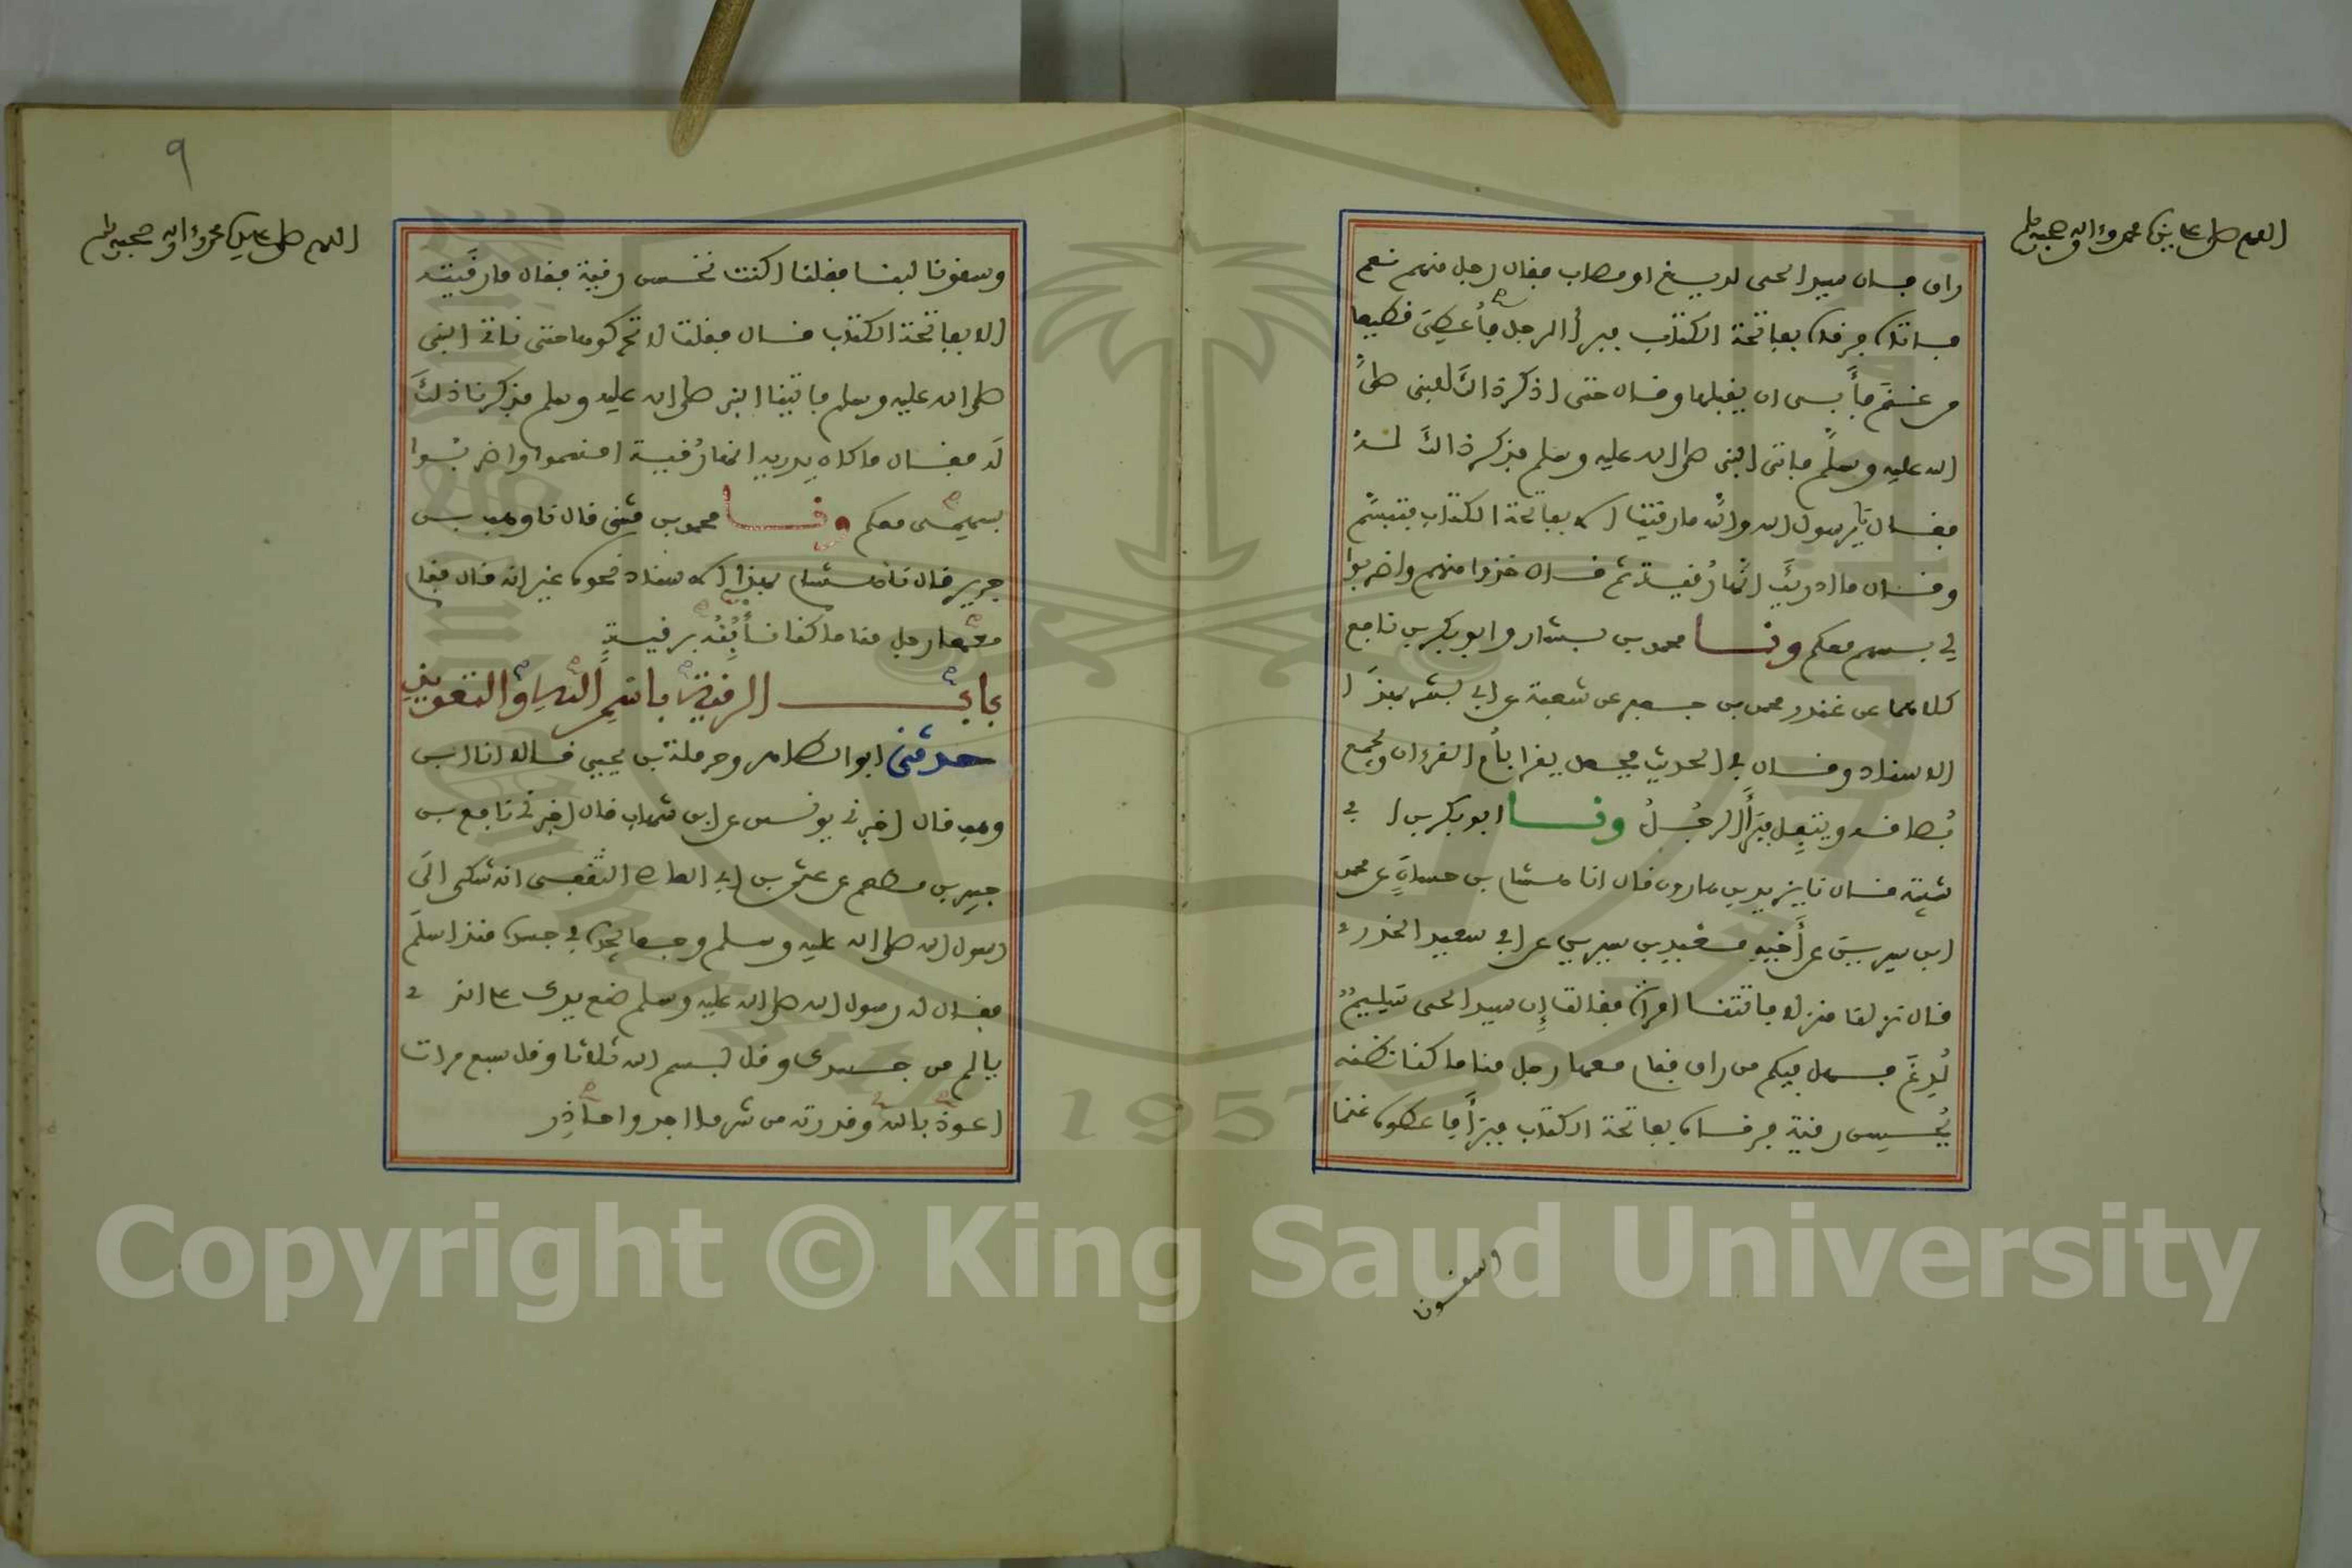 اللهم صل على نبينا محمد وءاله وصحبه وسلم
راق فان سيد الحي لديغ او مصاب فقال رجل منهم نعم
فاتاه فرقاه بفاتحة الكتاب فبرأ الرجل فأعطي قطيعا
من غنم فأبى ان يقبلها وقال حتى اذكر ذالك للنبي صلى
الله عليه وسلم فاتى النبي صلى الله عليه وسلم فذكر ذالك له
فقال يا رسول الله والله ما رقيت الا بفاتحة الكتاب فتبسم
وقال ما ادريك انها رقية ثم قال خذوا منهم واضربوا
لي بسهم معكم ونا محمد بن بشار وابو بكر بن نافع
كلاهما عن غندر محمد بن جعفر عن شعبة عن ابي بشر بهذا
الاسناد وقال في الحديث فجعل يقرأ بأم القرءان ويجمع
بصاقه ويتفل فبرأ الرجل ونا ابو بكر بن ابي
شيبة قال نا يزيد بن هارون قال انا هشام بن حسان عن محمد
ابن سيرين عن أخيه معبد بن سيرين عن ابي سعيد الخدري
قال نزلنا منزلا فاتتنا امراة فقالت إن سيد الحي سليم
لدغ فهل فيكم من راق فقام معها رجل منا ما كنا نظنه
يحسن رقية فرقاه بفاتحة الكتاب فبرأ فاعطوه غنما
وسقونا
٩
اللهم صل على سيدنا محمد وءاله وصحبه وسلم
وسقونا لبنا فقلنا اكنت تحسن رقية فقال ما رقيته
الا بفاتحة الكتاب قال فقلت لا تحركوها حتى ناتي النبي
صلى الله عليه وسلم فاتينا النبي صلى الله عليه وسلم فذكرنا ذلك
له فقال ما كان يدريه انها رقية اقسموا واضربوا
بسهمي معكم ونا محمد بن مثنى قال نا وهب بن
جرير قال نا هشام بهذا الاسناد نحوه غير انه قال فقام
معها رجل منا ما كنا نأبنه برقية
باب الرقية باسم الله والتعويذ
حدثني ابو الطاهر وحرملة بن يحيى قالا انا ابن
وهب قال اخبرني يونس عن ابن شهاب قال اخبرني نافع بن
جبير بن مطعم عن عثمن بن ابي العاص الثقفي انه شكى الى
رسول الله صلى الله عليه وسلم وجعا يجده في جسده منذ اسلم
فقال له رسول الله صلى الله عليه وسلم ضع يدك على الذي
يالم من جسدك وقل بسم الله ثلاثا وقل سبع مرات
اعوذ بالله وقدرته من شر ما اجد واحاذر
Copyright © King Saud University
1957